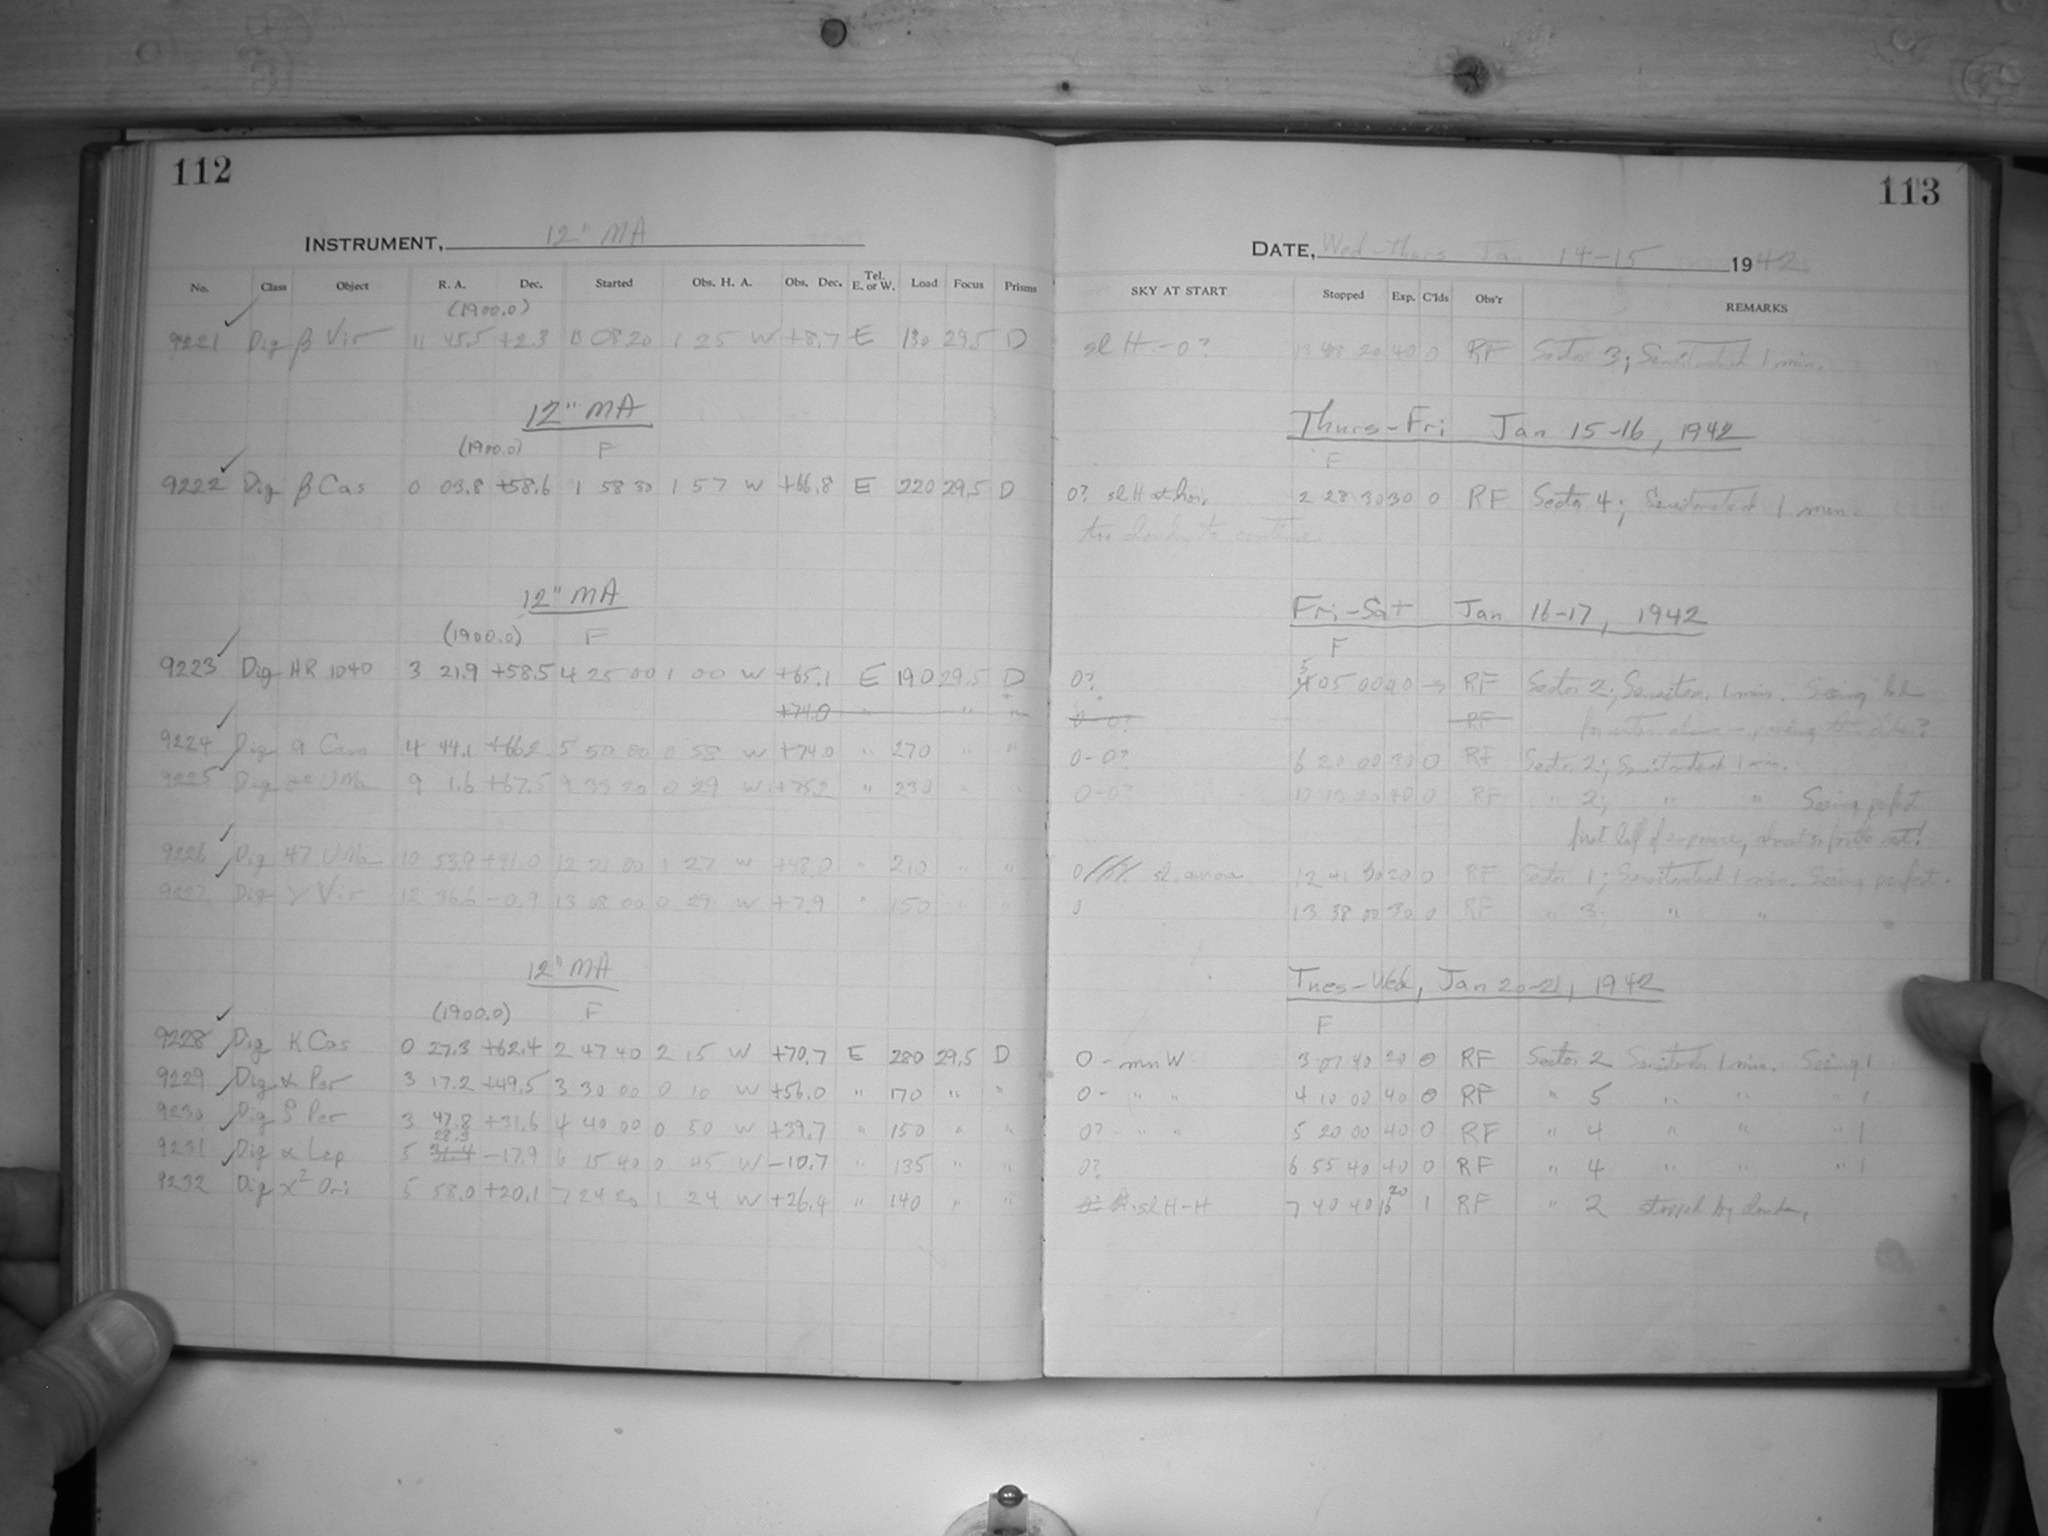 112
INSTRUMENT, 12" MA
No. Class Object R. A. Dec. Started Obs. H. A. Obs. Dec. Tel. E. or W. Load Focus Prisms
(1900.0)
9221 Dig β Vir 11 45.5 +2.3 08 20 1 25 W +8.7 E 130 29.5 D
12" MA
(1900.0) F
9222 Dig β Cas 0 03.8 +58.6 1 58 30 1 57 W +66.8 E 220 29.5 D
12" MA
(1900.0) F
9223 Dig HR 1040 3 21.9 +58.5 4 25 00 1 00 W +65.1 E 190 29.5 D
+74.0 " " "
9224 Dig 9 Cam 4 44.1 +66.2 5 50 00 0 58 W +74.0 " 270 " "
9225 Dig UMa 9 1.6 +67.5 9 35 20 0 29 W +75.2 " 230 " "
9226 Dig 47 UMa 10 53.9 +41.0 12 21 00 1 27 W +48.0 " 210 " "
9227 Dig γ Vir 12 36.6 -0.9 13 08 00 0 29 W +7.9 " 150 " "
12" MA
(1900.0) F
9228 Dig K Cas 0 27.3 +62.4 2 47 40 2 15 W +70.7 E 280 29.5 D
9229 Dig α Per 3 17.2 +49.5 3 30 00 0 10 W +56.0 " 170 " "
9230 Dig Per 3 47.8 +31.6 4 40 00 0 50 W +39.7 " 150 " "
28.3
9231 Dig α Lep 5 31.4 -17.9 6 15 40 0 45 W -10.7 " 135 " "
9232 Dig χ² Ori 5 58.0 +20.1 7 24 20 1 24 W +26.4 " 140 " "
113
DATE, Wed-Thurs Jan 14-15 1942
SKY AT START Stopped Exp. C'lds Obs'r REMARKS
sl H - 0? 13 48 20 40 0 RF Sector 3; 1 min.
Thurs-Fri Jan 15-16, 1942
F
0? sl H at hor. 2 28 30 30 0 RF Sector 4; 1 min.
too cloudy to continue
Fri-Sat Jan 16-17, 1942
F
5
0? 4 05 00 40 RF Sector 2; 1 min. Seeing
0-0? RF
0-0? 6 20 00 30 0 RF Sector 2; 1 min.
0-0? 10 15 20 40 0 RF " 2; " " Seeing perfect
first half of exposure,
0 sl. aurora 12 41 30 20 0 RF Sector 1; 1 min. Seeing perfect.
0 13 38 00 30 0 RF " 3 " "
Tues-Wed, Jan 20-21, 1942
F
0 - mn W 3 07 40 20 0 RF Sector 2 1 min. Seeing 1
0 - " " 4 10 00 40 0 RF " 5 " " " 1
0? - " " 5 20 00 40 0 RF " 4 " " " 1
0? 6 55 40 40 0 RF " 4 " " " 1
sl H-H 7 40 40 20 1 RF " 2 stopped by clouds,